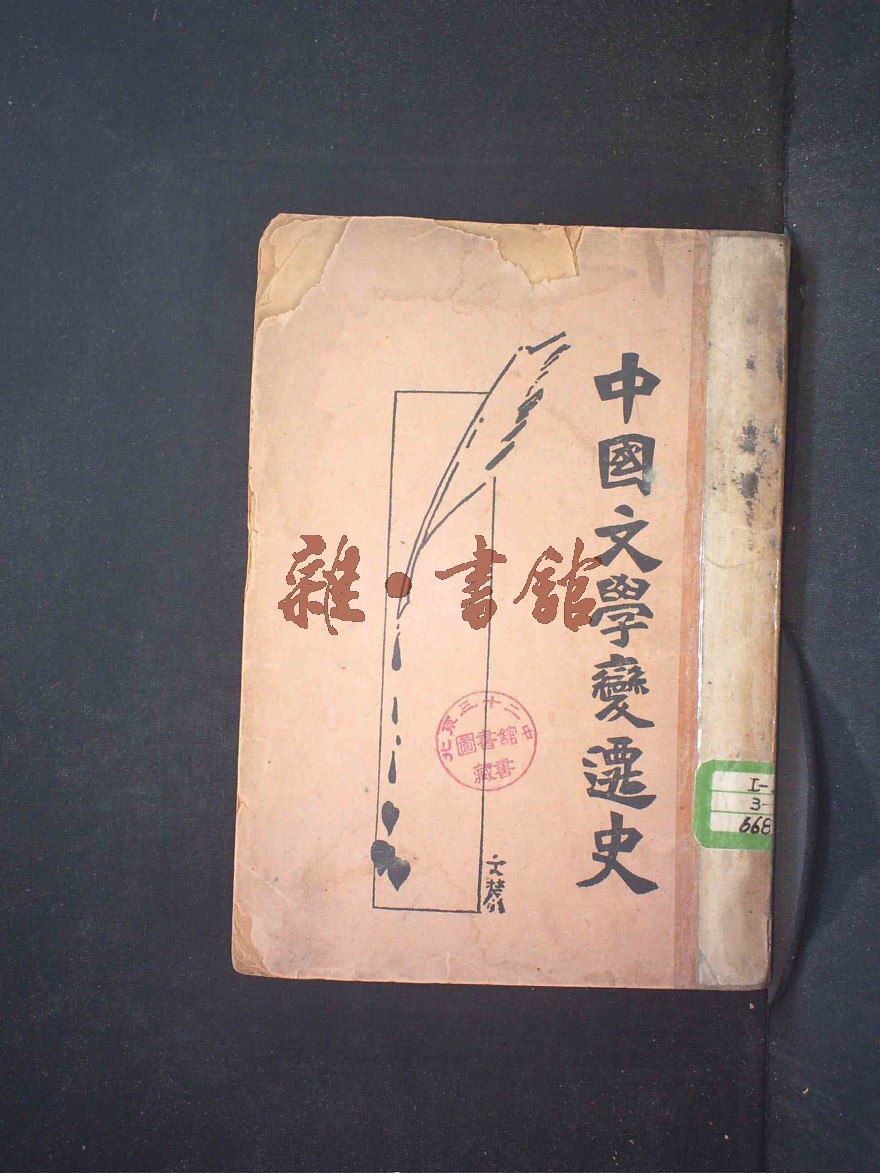 中國文學變遷史
雜·書館
北京三十二中
圖書館
藏書
I-
3-
668